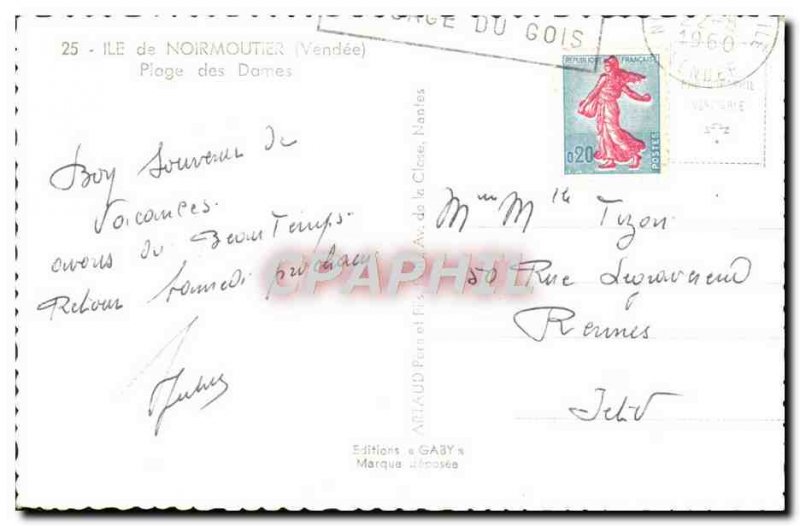 25 - ILE de NOIRMOUTIER (Vendée)
Plage des Dames
SAGE DU GOIS
1960
VENDEE
REPUBLIQUE FRANÇAISE
0,20
POSTES
Bon Souvenir de
Vacances.
avons du Beau Temps.
Retour Samedi prochain
CPAPHIL
ARTAUD Père et Fils Av. de la Close, Nantes
Mme Mlle Tizon
50 Rue Legraverend
Rennes
I et V
Editions « GABY »
Marque déposée